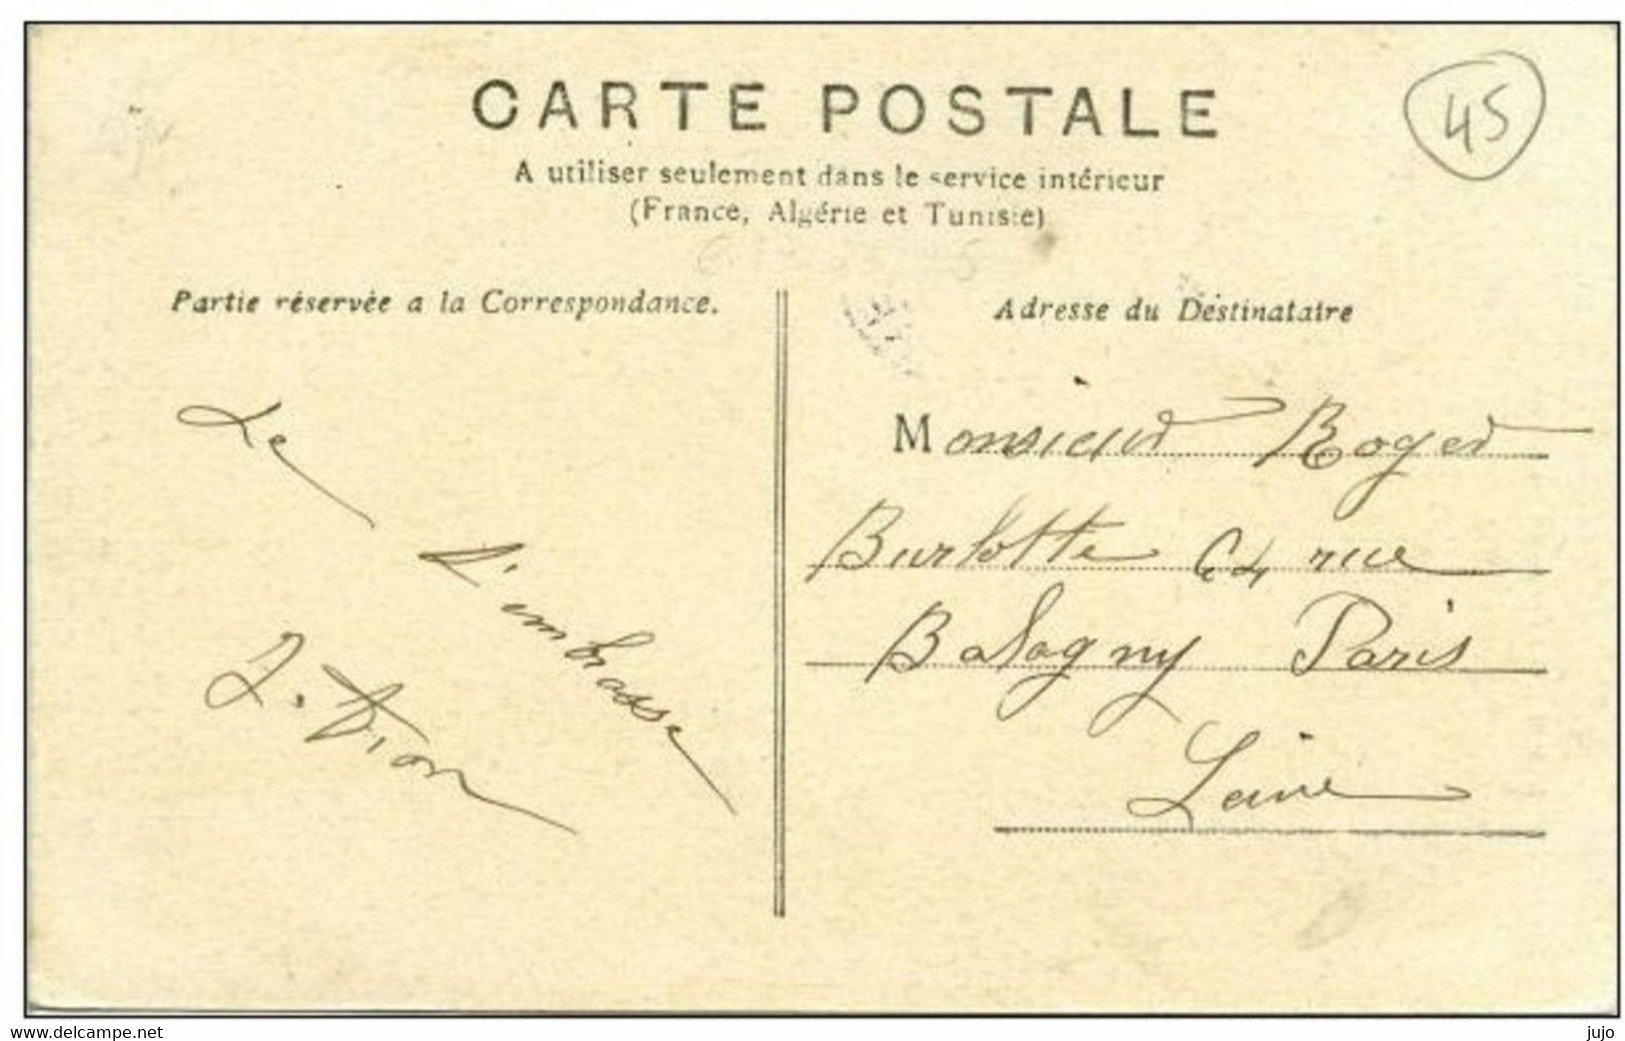 CARTE POSTALE
45
A utiliser seulement dans le service intérieur
(France, Algérie et Tunisie)
Partie réservée a la Correspondance.
Adresse du Destinataire
Le
t'embrasse
Dion
Monsieur Roger
Burlotte 64 rue
Balagny Paris
Seine
www.delcampe.net
jujo